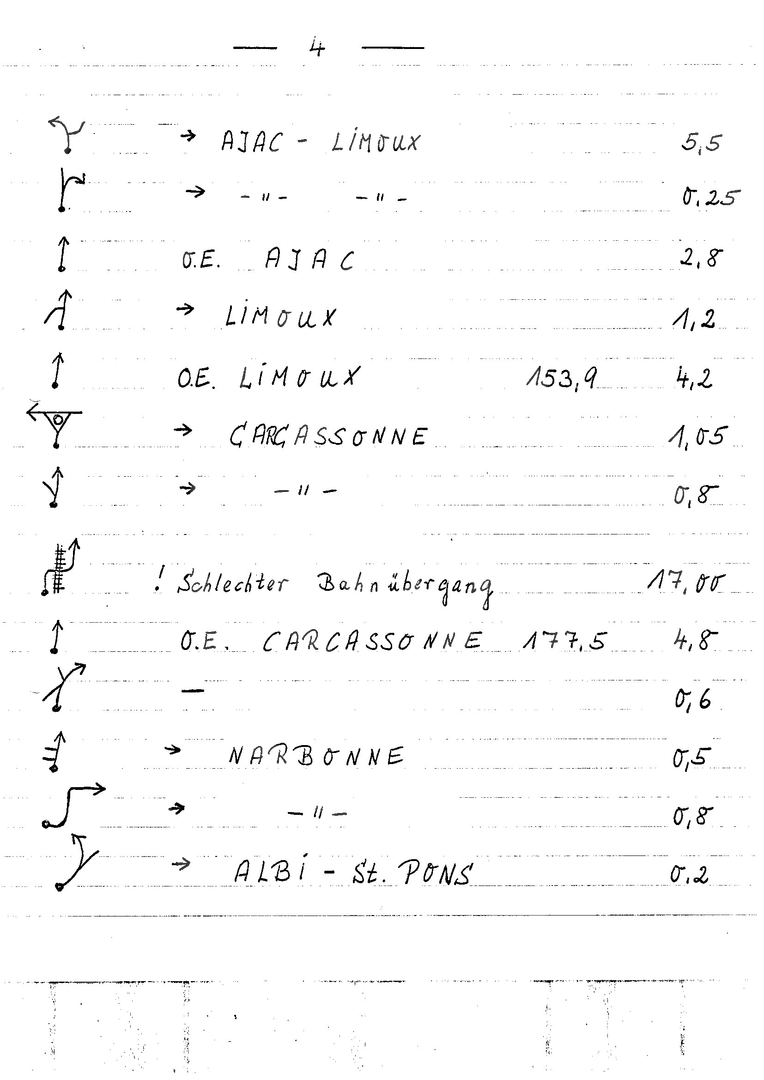 — 4 —
→ AJAC - LIMOUX 5,5
→ - " - - " - 0,25
O.E. AJAC 2,8
→ LIMOUX 1,2
O.E. LIMOUX 153,9 4,2
→ CARCASSONNE 1,05
→ - " - 0,8
! Schlechter Bahnübergang 17,00
O.E. CARCASSONNE 177,5 4,8
— 0,6
→ NARBONNE 0,5
→ - " - 0,8
→ ALBI - St. PONS 0,2